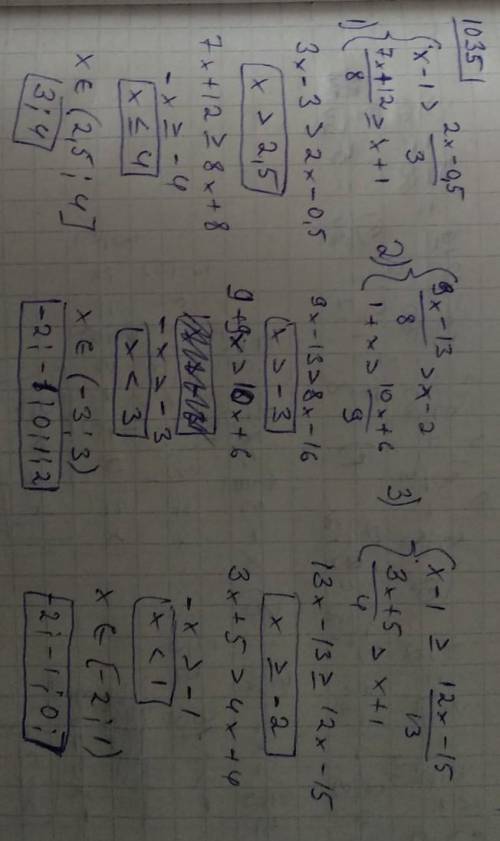 1035
1) { x - 1 > (2x - 0,5)/3
(7x + 12)/8 ≥ x + 1
3x - 3 > 2x - 0,5
x > 2,5
7x + 12 ≥ 8x + 8
-x ≥ -4
x ≤ 4
x ∈ (2,5 ; 4]
3; 4
2) { (9x - 13)/8 > x - 2
1 + x > (10x + 6)/9
9x - 13 > 8x - 16
x > -3
9 + 9x > 10x + 6
-x > -3
x < 3
x ∈ (-3 ; 3)
-2; -1; 0; 1; 2
3) { x - 1 ≥ (12x - 15)/13
(3x + 5)/4 > x + 1
13x - 13 ≥ 12x - 15
x ≥ -2
3x + 5 > 4x + 4
-x > -1
x < 1
x ∈ [-2 ; 1)
-2; -1; 0;